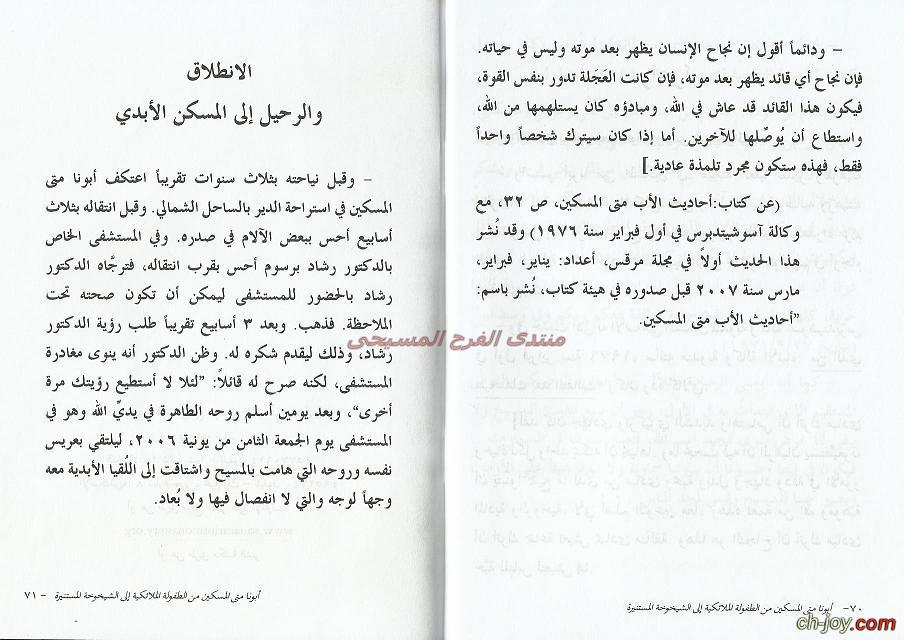 – ودائماً أقول إن نجاح الإنسان يظهر بعد موته وليس في حياته.
فإن نجاح أي قائد يظهر بعد موته، فإن كانت العَجَلة تدور بنفس القوة،
فيكون هذا القائد قد عاش في الله، ومبادؤه كان يستلهمها من الله،
واستطاع أن يُوصِّلها للآخرين. أما إذا كان سيترك شخصاً واحداً
فقط، فهذه ستكون مجرد تلمذة عادية.]
(عن كتاب:أحاديث الأب متى المسكين، ص ٣٢، مع
وكالة آسوشيتدبرس في أول فبراير سنة ١٩٧٦) وقد نُشر
هذا الحديث أولاً في مجلة مرقس، أعداد: يناير، فبراير،
مارس سنة ٢٠٠٧ قبل صدوره في هيئة كتاب، نُشر باسم:
"أحاديث الأب متى المسكين.
٧٠– أبونا متى المسكين من الطفولة الملائكية إلى الشيخوخة المستنيرة
الانطلاق
والرحيل إلى المسكن الأبدي
– وقبل نياحته بثلاث سنوات تقريباً اعتكف أبونا متى
المسكين في استراحة الدير بالساحل الشمالي. وقبل انتقاله بثلاث
أسابيع أحس ببعض الآلام في صدره. وفي المستشفى الخاص
بالدكتور رشاد برسوم أحس بقرب انتقاله، فترجَّاه الدكتور
رشاد بالحضور للمستشفى ليمكن أن تكون صحته تحت
الملاحظة. فذهب. وبعد ٣ أسابيع تقريباً طلب رؤية الدكتور
رشاد، وذلك ليقدم شكره له. وظن الدكتور أنه ينوى مغادرة
المستشفى، لكنه صرح له قائلاً: "لئلا لا أستطيع رؤيتك مرة
أخرى"، وبعد يومين أسلم روحه الطاهرة في يديِّ الله وهو في
المستشفى يوم الجمعة الثامن من يونية ٢٠٠٦، ليلتقي بعريس
نفسه وروحه التي هامت بالمسيح واشتاقت إلى اللُقيا الأبدية معه
وجهاً لوجه والتي لا انفصال فيها ولا بُعاد.
أبونا متى المسكين من الطفولة الملائكية إلى الشيخوخة المستنيرة – ٧١
منتدى الفرح المسيحى
ch-joy.com